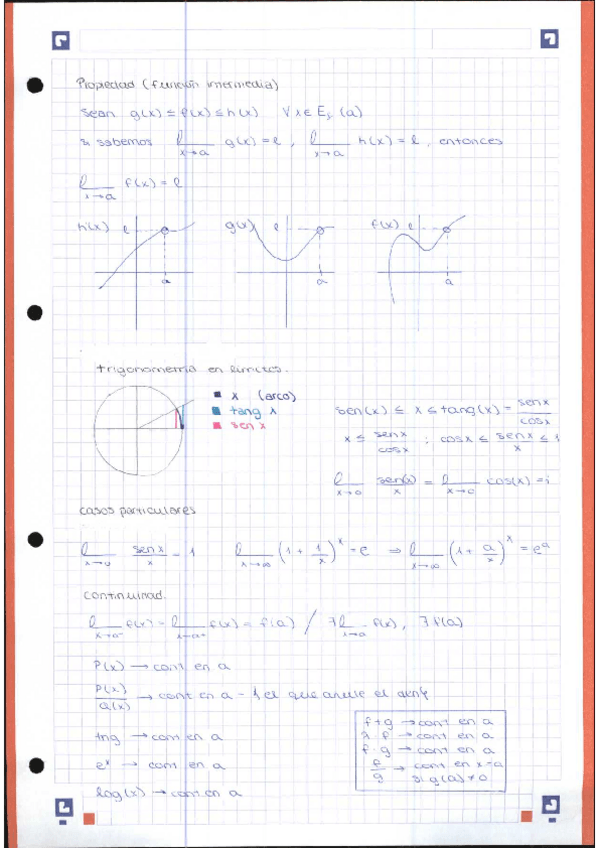 Propiedad (función intermedia)
Sean g(x) ≤ f(x) ≤ h(x) ∀x ∈ E (a)
si sabemos l x→a g(x) = l , l x→a h(x) = l , entonces
l x→a f(x) = l
h(x) l a g(x) l a f(x) l a
trigonometría en límites.
x (arco)
tang x
sen x
sen(x) ≤ x ≤ tang(x) = sen x / cos x
x ≤ sen x / cos x ; cos x ≤ sen x / x ≤ 1
l x→0 sen(x) / x = l x→0 cos(x) = 1
casos particulares
l x→0 sen x / x = 1 l x→∞ (1 + 1/x)^x = e ⇒ l x→∞ (1 + a/x)^x = e^a
continuidad.
l x→a⁻ f(x) = l x→a⁺ f(x) = f(a) / ∃ l x→a f(x) , ∃ f(a)
P(x) → cont en a
P(x) / Q(x) → cont en a - el que anule el
tng → cont en a
e^x → cont en a
log(x) → cont en a
f+g → cont en a
λ·f → cont en a
f·g → cont en a
f/g → cont en x=a
si g(a) ≠ 0